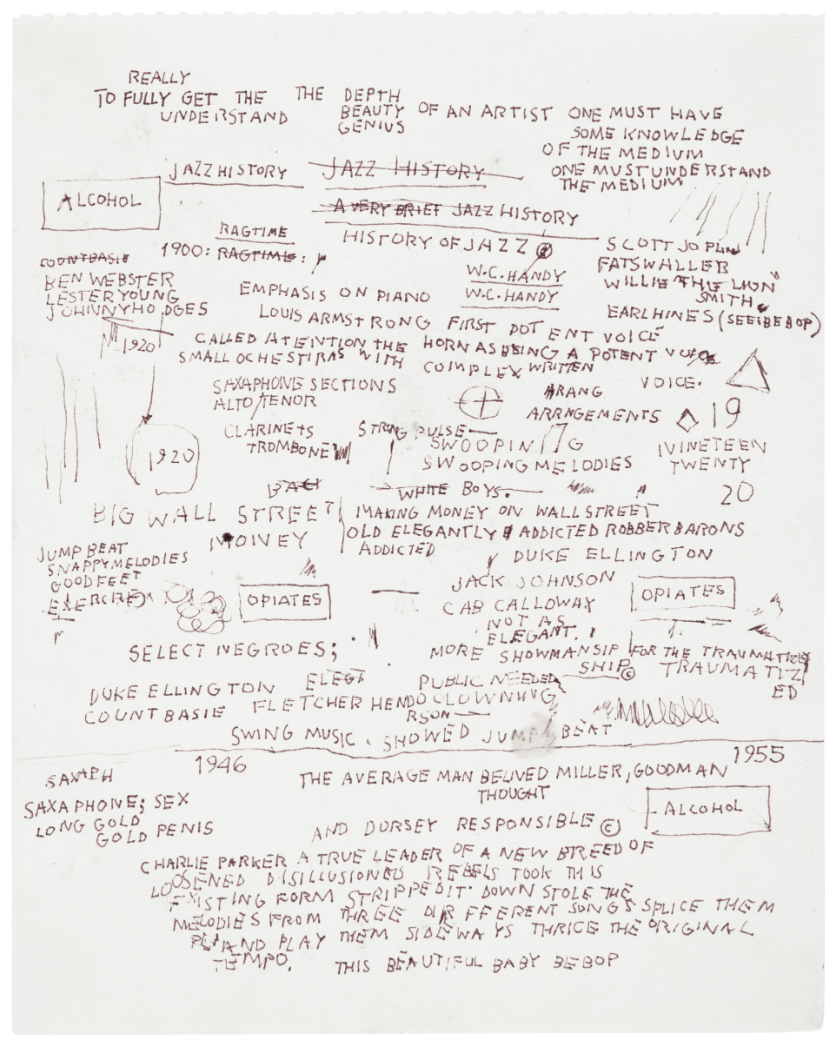 REALLY
TO FULLY GET THE THE DEPTH
UNDERSTAND BEAUTY OF AN ARTIST ONE MUST HAVE
GENIUS SOME KNOWLEDGE
OF THE MEDIUM
ONE MUST UNDERSTAND
THE MEDIUM
JAZZ HISTORY JAZZ HISTORY
ALCOHOL
A VERY BRIEF JAZZ HISTORY
RAGTIME
HISTORY OF JAZZ
SCOTT JOPLIN
COUNT BASIE 1900: RAGTIME:
W.C. HANDY FATS WALLER
BEN WEBSTER WILLIE "THE LION"
LESTER YOUNG EMPHASIS ON PIANO W.C. HANDY SMITH
JOHNNY HODGES EARL HINES (SEE BEBOP)
LOUIS ARMSTRONG FIRST POTENT VOICE
1920 CALLED ATENTION THE HORN AS BEING A POTENT VOICE
SMALL OCHESTIRAS WITH COMPLEX WRITTEN
SAXAPHONE SECTIONS ARANG VOICE.
ALTO/TENOR ARRNGEMENTS 19
CLARINETS STRONG PULSE
TROMBONE SWOOPIN G NINETEEN
1920 SWOOPING MELODIES TWENTY
WHITE BOYS. 20
BIG WALL STREET MAKING MONEY ON WALL STREET
MONEY OLD ELEGANTLY ADDICTED ROBBER BARONS
JUMP BEAT ADDICTED
SNAPPY MELODIES DUKE ELLINGTON
GOOD FEET JACK JOHNSON
OPIATES OPIATES
CAB CALLOWAY
NOT AS
ELEGANT.
SELECT NEGROES; MORE SHOWMANSIP FOR THE TRAUMATIZ
SHIP © TRAUMATIZ
ED
DUKE ELLINGTON ELEGT PUBLIC NEEDED
COUNT BASIE FLETCHER HENDO CLOWNING
RSON
SWING MUSIC. SHOWED JUMP BEAT
1946 1955
SAXAPH THE AVERAGE MAN BELIVED MILLER, GOODMAN
SAXAPHONE; SEX THOUGHT
LONG GOLD ALCOHOL
GOLD PENIS AND DORSEY RESPONSIBLE ©
CHARLIE PARKER A TRUE LEADER OF A NEW BREED OF
LOOSENED DISILLUSIONED REBELS TOOK THIS
EXISTING FORM STRIPPED IT DOWN STOLE THE
MELODIES FROM THREE DIFFFERENT SONGS SPLICE THEM
AND PLAY THEM SIDEWAYS THRICE THE ORIGINAL
TEMPO. THIS BEAUTIFUL BABY BEBOP